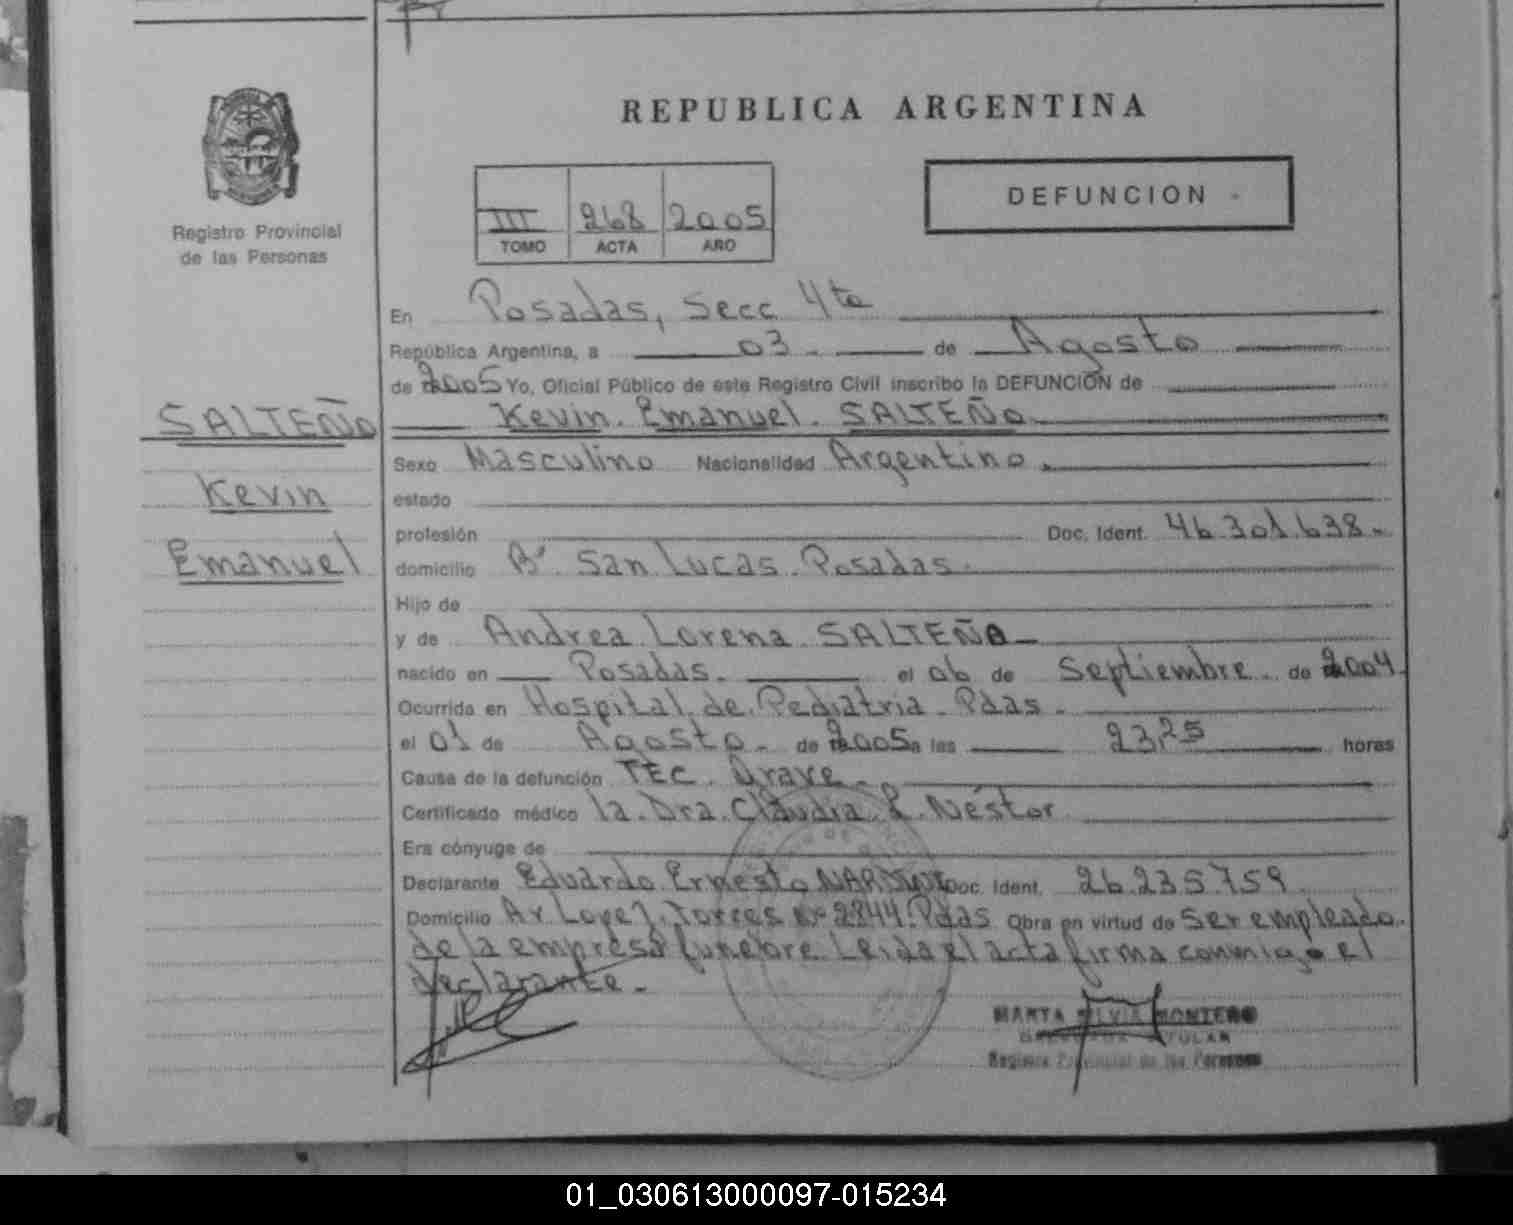 REPUBLICA ARGENTINA
DEFUNCION
Registro Provincial
de las Personas
III 268 2005
TOMO ACTA AÑO
En Posadas, Secc 4ta
República Argentina, a 03 de Agosto
de 2005 Yo, Oficial Público de este Registro Civil inscribo la DEFUNCIÓN de
Kevin Emanuel SALTEÑO
SALTEÑO
Kevin
Emanuel
Sexo Masculino Nacionalidad Argentino
estado
profesión Doc. Ident. 46.301.638
domicilio Bº San Lucas. Posadas.
Hijo de
y de Andrea Lorena SALTEÑO
nacido en Posadas. el 06 de Septiembre de 2004
Ocurrida en Hospital de Pediatria Pdas.
el 01 de Agosto de 2005 a las 23,25 horas
Causa de la defunción TEC. Grave
Certificado médico la Dra. Claudia Néstor
Era cónyuge de
Declarante Eduardo Ernesto Doc. Ident. 26.235.759
Domicilio Av Lopez Torres Nº 2844. Pdas Obra en virtud de ser empleado
de la empresa funebre. Leida el acta firma conmigo el
declarante.
MARTA SILVIA MONTERO
TITULAR
Registro Provincial de las Personas
01_030613000097-015234